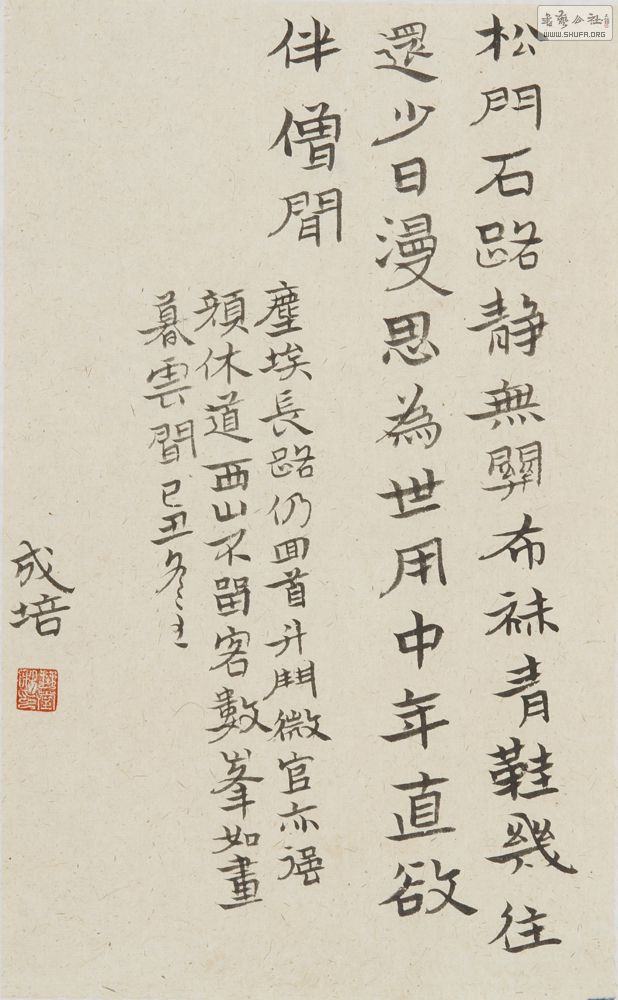 松門石路静無關布袜青鞋幾往
還少日漫思為世用中年直欲
伴僧閒
塵埃長路仍回首升鬭微官亦强
顔休道西山不留客數峯如畫
暮雲間己丑冬至
成培
書藝公社
WWW.SHUFA.ORG